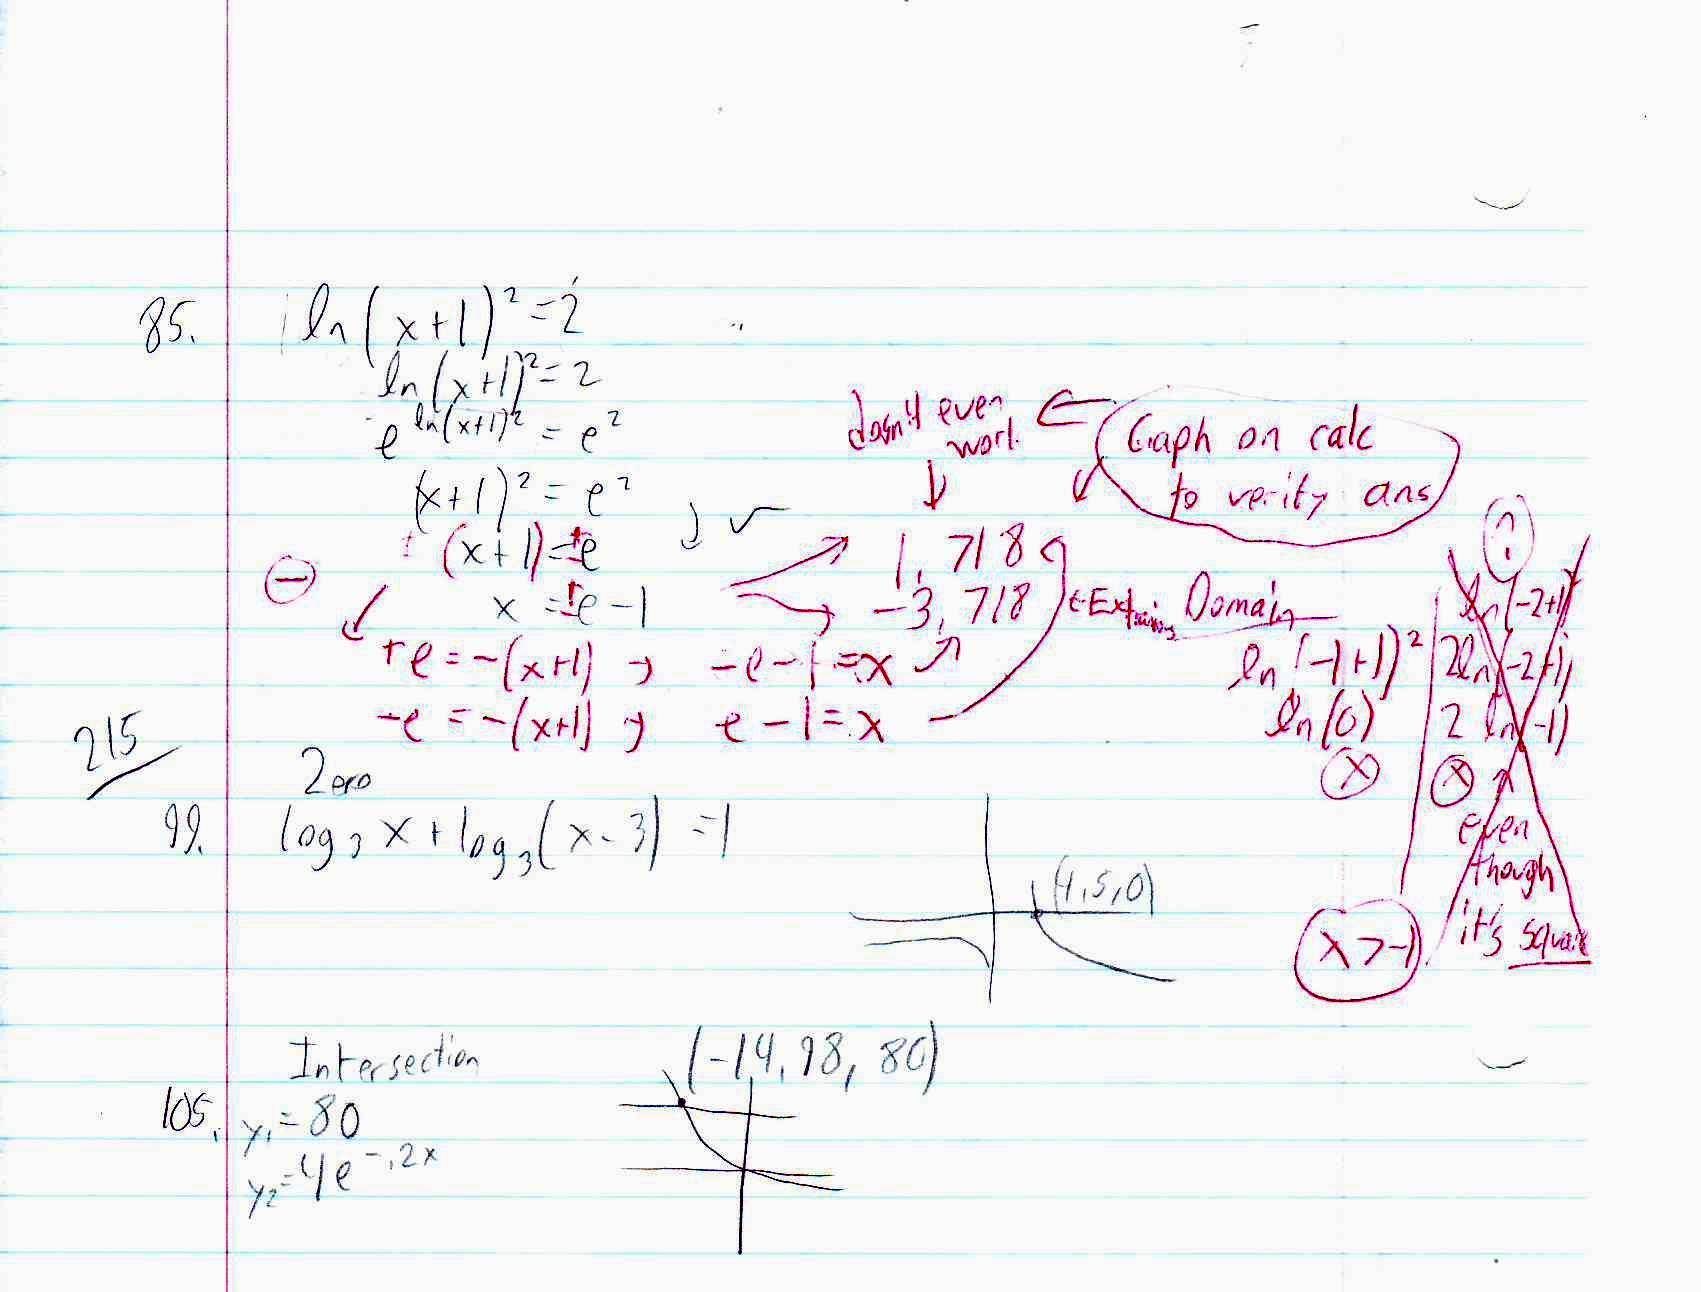 85. ln(x+1)² = 2
ln(x+1)² = 2
e^ln(x+1)² = e²
(x+1)² = e²
(x+1) = ±e
x = ±e - 1
+e = -(x+1) , -e-1 = x
-e = -(x+1) , e-1 = x
doesn't even
work
Gaph on calc
to verity ans
1,718
-3,718
Domain
ln(-1+1)²
ln(0)
x
x > -1
?
ln(-2+1)
2ln(-2+1)
2 ln(-1)
x
even
though
it's square
215
Zero
99. log₃ x + log₃(x-3) = 1
(4,5,0)
Intersection
(-14,98, 80)
105. y₁ = 80
y₂ = 4e^-.2x